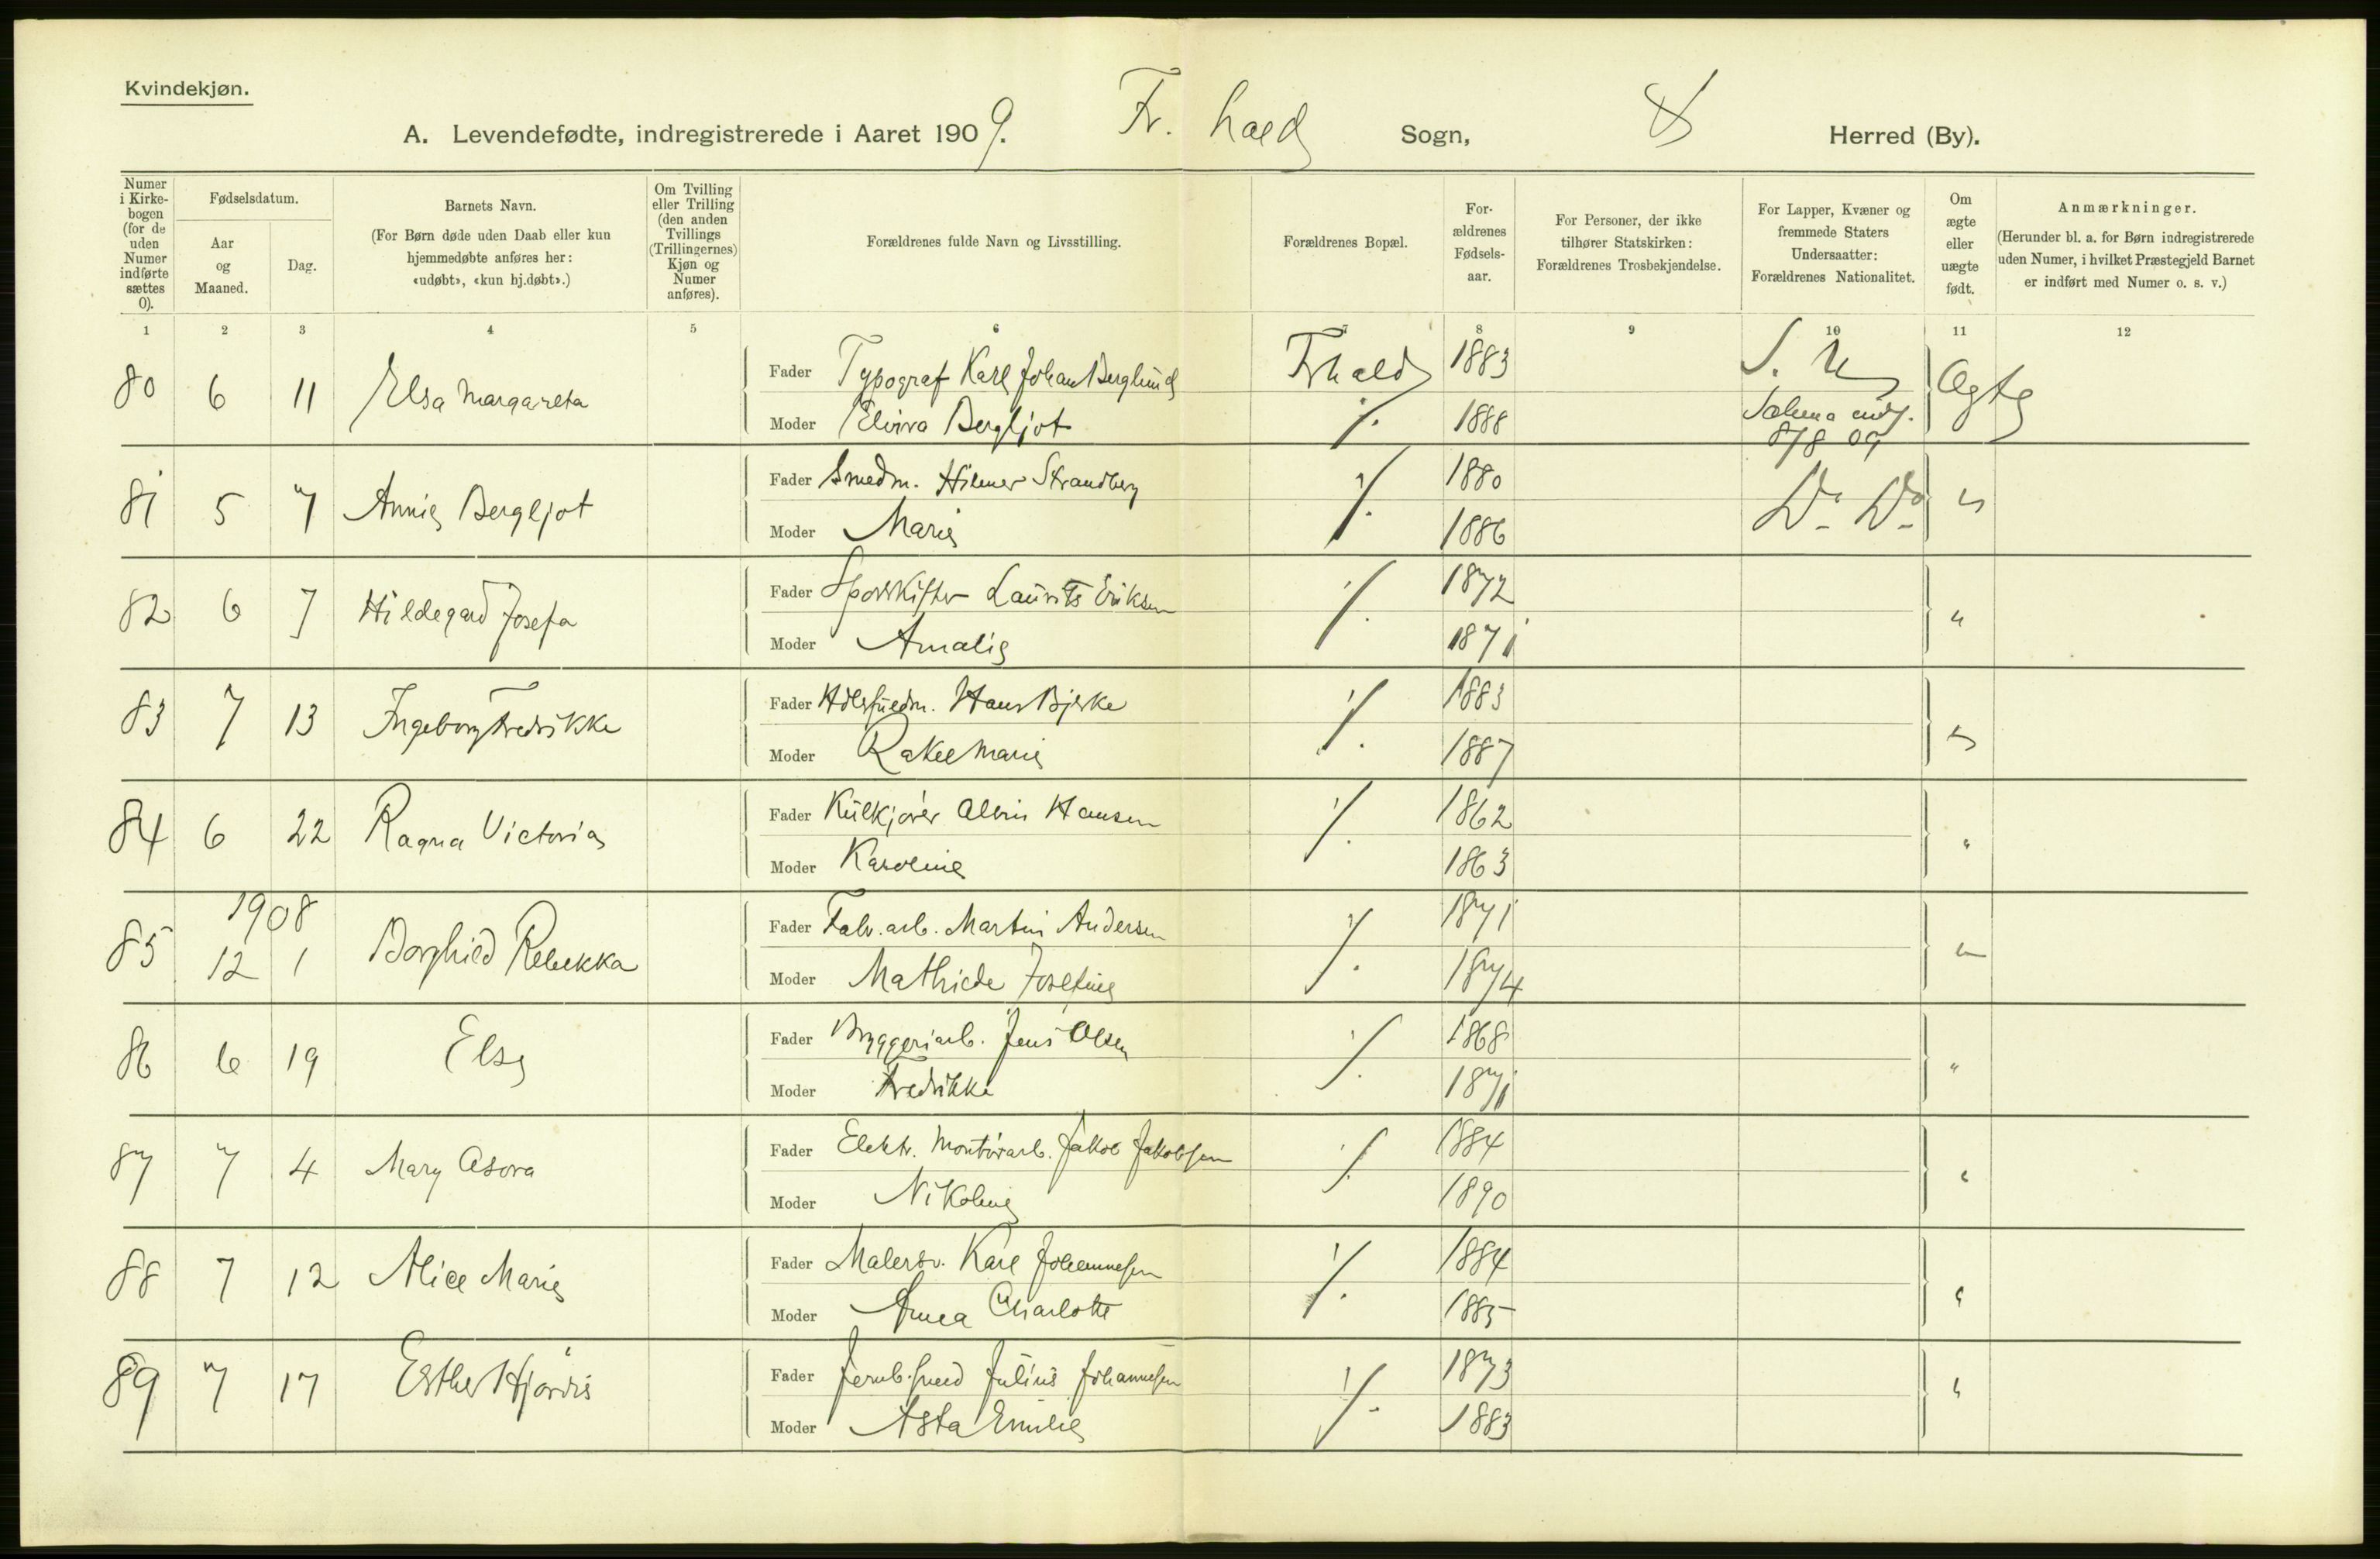 Kvindekjøn.
A. Levendefødte, indregistrerede i Aaret 1909. Fr. hald Sogn, Herred (By).
Numer i Kirke-bogen (for de uden Numer indførte sættes 0).
Fødselsdatum.
Aar og Maaned.
Dag.
Barnets Navn.
(For Børn døde uden Daab eller kun hjemmedøbte anføres her: «udøbt», «kun hj.døbt».)
Om Tvilling eller Trilling (den anden Tvillings (Trillingernes) Kjøn og Numer anføres).
Forældrenes fulde Navn og Livsstilling.
Forældrenes Bopæl.
For-ældrenes Fødsels-aar.
For Personer, der ikke tilhører Statskirken: Forældrenes Trosbekjendelse.
For Lapper, Kvæner og fremmede Staters Undersaatter: Forældrenes Nationalitet.
Om ægte eller uægte født.
Anmærkninger.
(Herunder bl. a. for Børn indregistrerede uden Numer, i hvilket Præstegjeld Barnet er indført med Numer o. s. v.)
1 2 3 4 5 6 7 8 9 10 11 12
80 6 11 Elsa Margareta Fader Typograf Karl Johan Berglund Frhald 1883 S. U Ægte
Moder Elvira Bergljot ٪ 1888
81 5 7 Annie Bergljot Fader Smedm. Hilmer Strandberg ٪ 1880 Do Do "
Moder Marie 1886
82 6 7 Hildegard Josefa Fader Sporskifter Laurits Eriksen ٪ 1872 "
Moder Amalie 1871
83 7 13 Ingeborg Fredrikke Fader Hans Bjerke ٪ 1883 "
Moder Rakel Marie 1887
84 6 22 Ragna Victoria Fader Kulkjører Albin Hansen ٪ 1862 "
Moder Karoline 1863
85 1908 12 1 Borghild Rebekka Fader Fabr.arb. Martin Andersen ٪ 1871 "
Moder Mathilde Josefine 1874
86 6 19 Else Fader Bryggeriarb. Jens Olsen ٪ 1868 "
Moder Fredrikke 1871
87 7 4 Mary Asora Fader Elektr. Montørarb. Jakob Jakobsen ٪ 1884 "
Moder Nikoline 1890
88 7 12 Alice Marie Fader Malersv. Karl Johannesen ٪ 1884 "
Moder Anna Charlotte 1885
89 7 17 Esther Hjørdis Fader Jernb.smed Julius Johannesen ٪ 1873 "
Moder Asta Emilie 1883